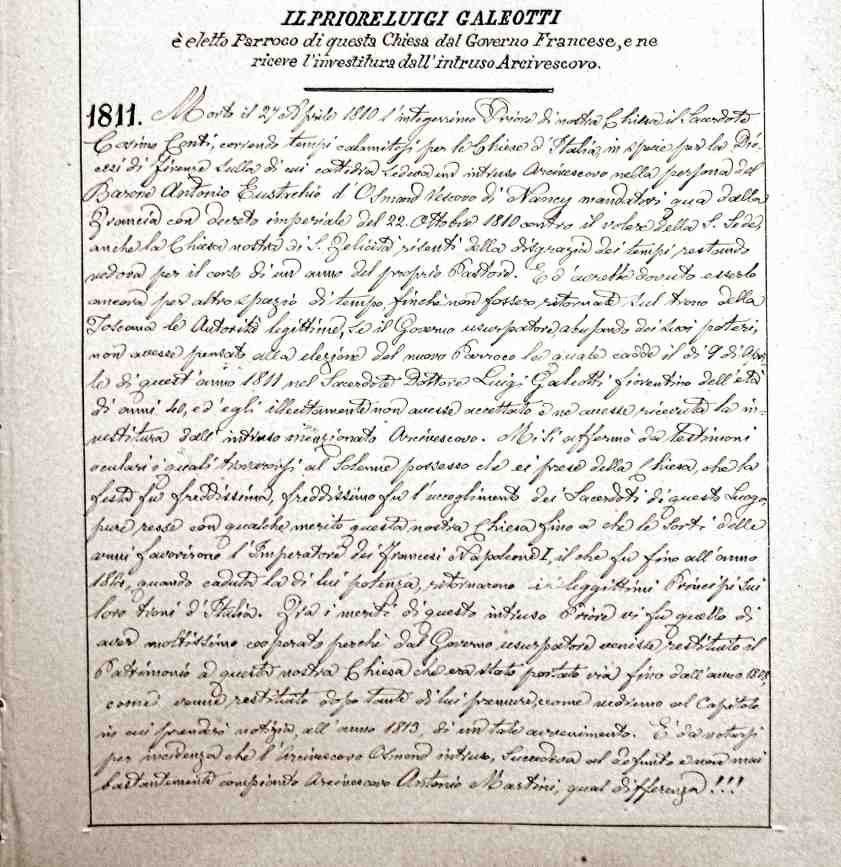 IL PRIORE LUIGI GALEOTTI
è eletto Parroco di questa Chiesa dal Governo Francese, e ne
riceve l'investitura dall'intruso Arcivescovo.
1811. Morto il 27 Aprile 1810 l'integerrimo Priore di nostra Chiesa il Sacerdote
Cosimo Conti, correndo tempi calamitosi per le Chiese d'Italia, in specie per la Dio-
cesi di Firenze sulla di cui cattedra sedeva un intruso Arcivescovo nella persona del
Barone Antonio Eustachio d'Osmond Vescovo di Nancy mandatosi qua dalla
Francia con decreto imperiale del 22. Ottobre 1810 contro il volere della S. Sede,
anche la Chiesa nostra di S. Felicita risentì della disgrazia dei tempi restando
vedova per il corso di un anno del proprio Pastore. Ed avrebbe dovuto esserlo
ancora per altro spazio di tempo finchè non fossero ritornate sul trono della
Toscana le Autorità legittime, se il Governo usurpatore, abusando dei suoi poteri,
non avesse pensato alla elezione del nuovo Parroco la quale cadde il dì 9 di Apri-
le di quest'anno 1811 nel Sacerdote Dottore Luigi Galeotti fiorentino dell'età
di anni 40, ed egli illecitamente non avesse accettato e ne avesse ricevuta la in-
vestitura dall'intruso menzionato Arcivescovo. Mi si affermò da testimoni
oculari i quali trovaronsi al solenne possesso che ei prese della Chiesa, che la
festa fu freddissima, freddissimo fu l'accoglimento dei Sacerdoti di questo Luogo,
pure resse con qualche merito questa nostra Chiesa fino a che le sorti delle
armi favorirono l'Imperatore dei Francesi Napoleone I, il che fu fino all'anno
1814, quando caduta la di lui potenza, ritornarono i leggittimi Principi sui
loro troni d'Italia. Fra i meriti di questo intruso Priore vi fu quello di
aver moltissimo cooperato perchè dal Governo usurpatore venisse restituito il
Patrimonio a questa nostra Chiesa che era stato portato via fino dall'anno 1808,
come venne restituito dopo tante di lui premure, come vedremo al Capitolo
in cui prendesi notizia, all'anno 1813, di un tale avvenimento. È da notarsi
per incidenza che l'Arcivescovo Osmond intruso, succedeva al defunto e non mai
bastantemente compianto Arcivescovo Antonio Martini, qual differenza!!!